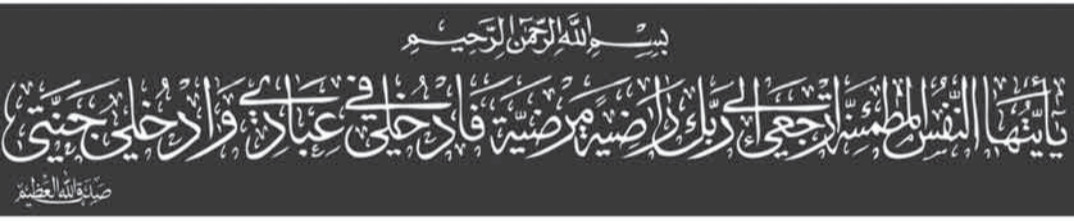 بِسْمِ اللَّهِ الرَّحْمَٰنِ الرَّحِيمِ
يَا أَيَّتُهَا النَّفْسُ الْمُطْمَئِنَّةُ ارْجِعِي إِلَى رَبِّكِ رَاضِيَةً مَرْضِيَّةً فَادْخُلِي فِي عِبَادِي وَادْخُلِي جَنَّتِي
صدق الله العظيم